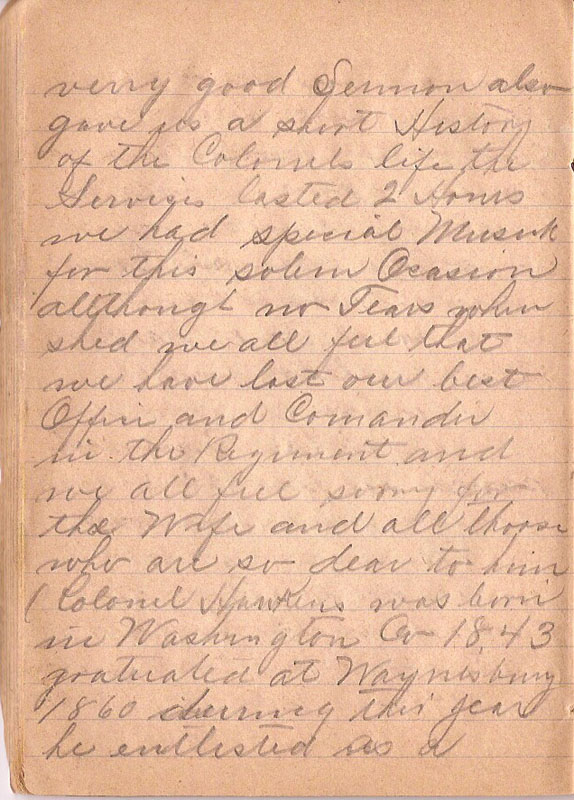 verry good Sermon also
gave us a short History
of the Colonels life the
Services lasted 2 Hours
we had special Musick
for this solem Ocasion
allthough no Tears when
shed we all feel that
we have lost our best
Officer and Comander
in the Regiment and
we all feel sorry for
the Wife and all thoose
who are so dear to him
( Colonel Hawkins was born
in Washington Co 1843
gratuated at Waynesburg
1860 durring this year
he entlested as a